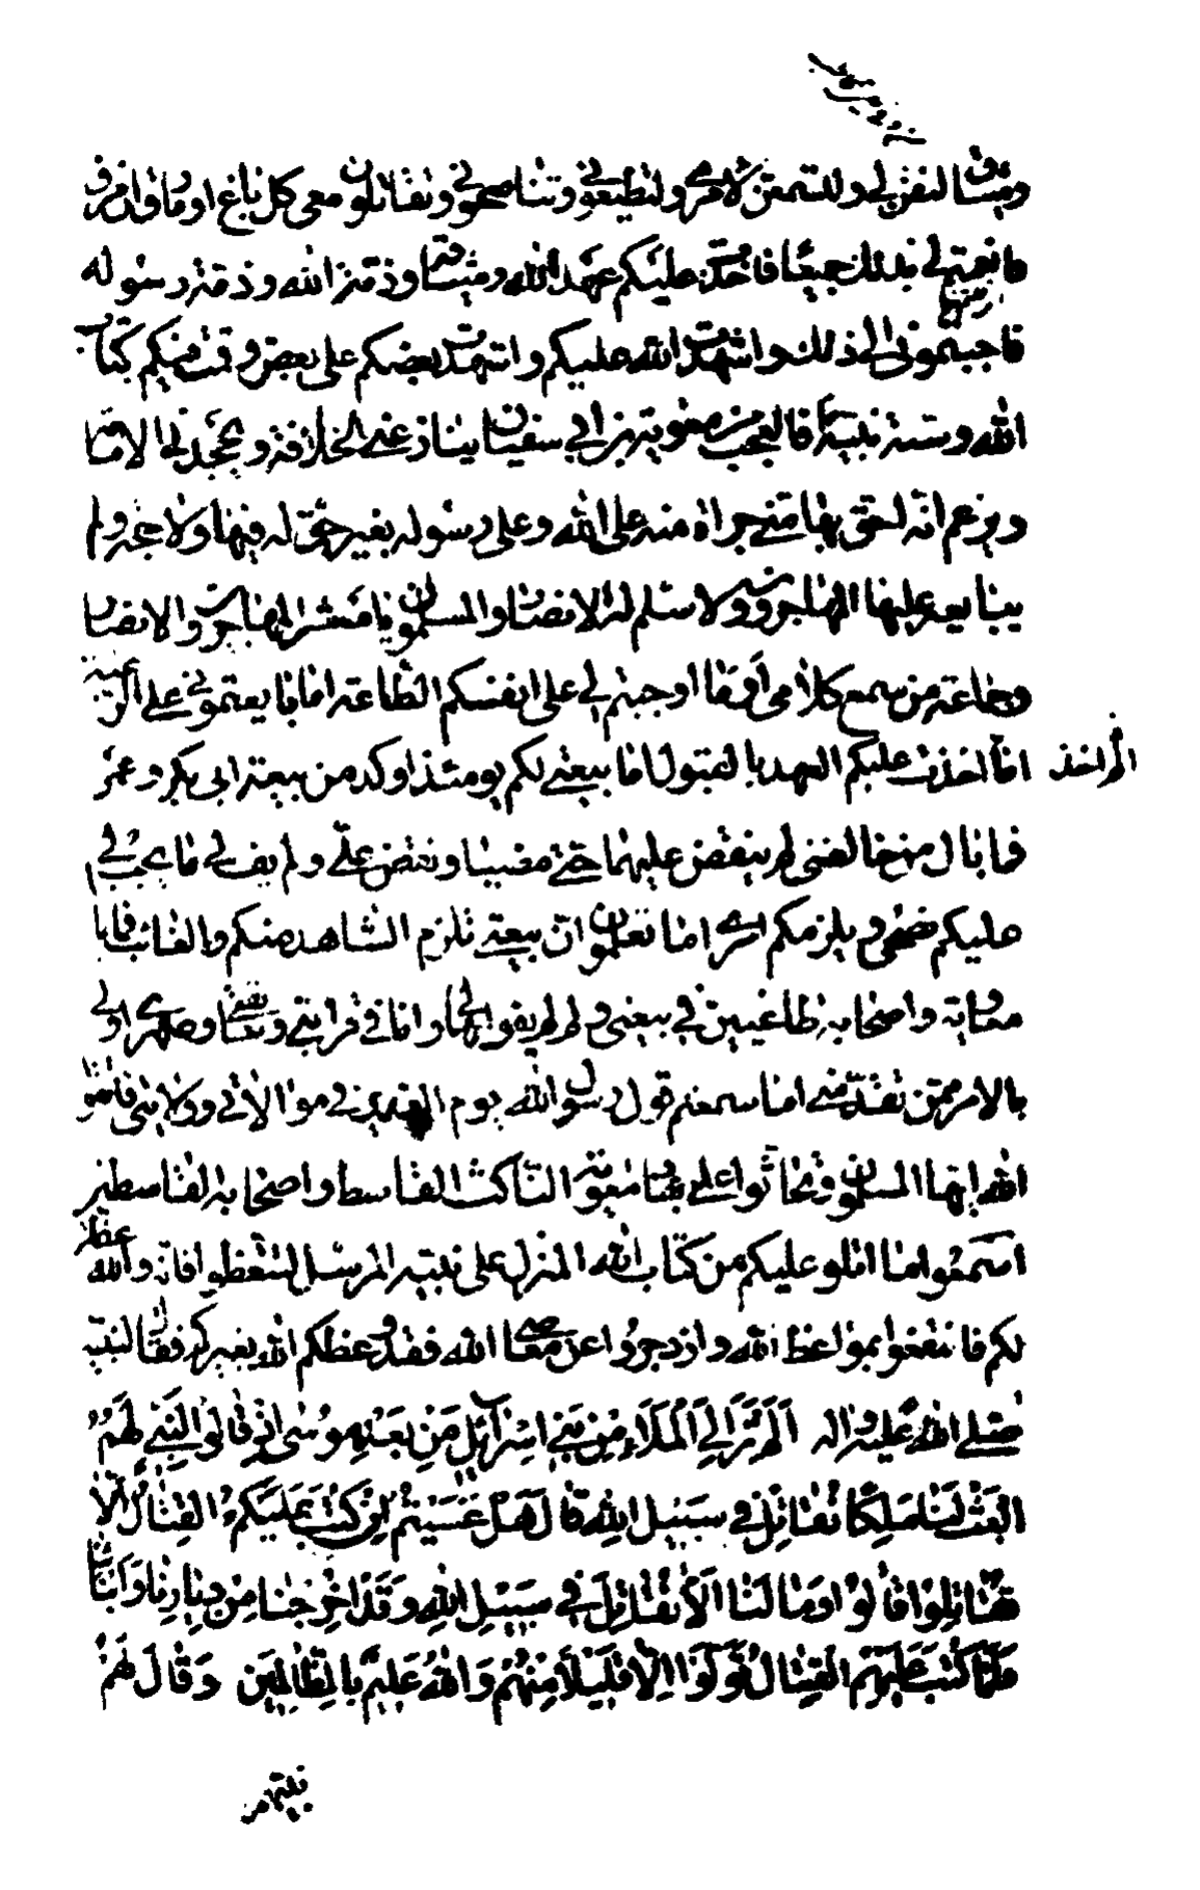 وميثاقه لتفن لي ولتسلمن لامري ولتطيعوني وتناصحوني وتقاتلون معي كل باغ او مارق ان مرق
فانعمتم لي بذلك جميعا فاخذت عليكم عهد الله وميثاقه وذمة الله وذمة رسوله
فاجبتموني الى ذلك واشهدت الله عليكم واشهدت بعضكم على بعض وقمت فيكم بكتاب
الله وسنة نبيه فالعجب من معوية بن ابي سفيان ينازعني الخلافة ويجحدني الامامة
ويزعم انه احق بها مني جراة منه على الله وعلى رسوله بغير حق له فيها ولا حجة ولم
يبايعه عليها المهاجرون ولا سلم له الانصار والمسلمون يا معشر المهاجرين والانصار
وجماعة من سمع كلامي او ما اوجبتم لي على انفسكم الطاعة اما بايعتموني على الرغبة
الم اخذ
اما اخذت عليكم العهد بالقبول اما بيعتي لكم يومئذ اوكد من بيعة ابي بكر وعمر
فما بال من خالفني لم ينقض عليهما حتى مضيا ونقض علي ولم يف لي اما يجب لي
عليكم نصحي ويلزمكم امري اما تعلمون ان بيعتي تلزم الشاهد منكم والغائب فما بال
معاوية واصحابه طاعنين في بيعتي ولم لم يفوا لي وانا في قرابتي وسابقتي وصهري اولى
بالامر ممن تقدمني اما سمعتم قول رسول الله يوم الغدير في موالاتي وولايتي فاتقوا
الله ايها المسلمون وتحاثوا على جهاد معوية الناكث القاسط واصحابه القاسطين
اسمعوا ما اتلو عليكم من كتاب الله المنزل على نبيه المرسل لتتعظوا فانه والله عظة
لكم فانتفعوا بمواعظ الله وازدجروا عن معاصي الله فقد وعظكم الله بغيركم فقال لنبيه
صلى الله عليه واله اَلَمْ تَرَ اِلَى الْمَلَاءِ مِنْ بَنِي اِسْرَائِيلَ مِنْ بَعْدِ مُوسَى اِذْ قَالُوا لِنَبِيٍّ لَهُمُ
ابْعَثْ لَنَا مَلِكًا نُقَاتِلْ فِي سَبِيلِ اللهِ قَالَ هَلْ عَسَيْتُمْ اِنْ كُتِبَ عَلَيْكُمُ الْقِتَالُ اَلَّا
تُقَاتِلُوا قَالُوا وَمَا لَنَا اَلَّا نُقَاتِلَ فِي سَبِيلِ اللهِ وَقَدْ اُخْرِجْنَا مِنْ دِيَارِنَا وَاَبْنَائِنَا
فَلَمَّا كُتِبَ عَلَيْهِمُ الْقِتَالُ تَوَلَّوْا اِلَّا قَلِيلًا مِنْهُمْ وَاللهُ عَلِيمٌ بِالظَّالِمِينَ وَقَالَ لَهُمْ
نبيهم